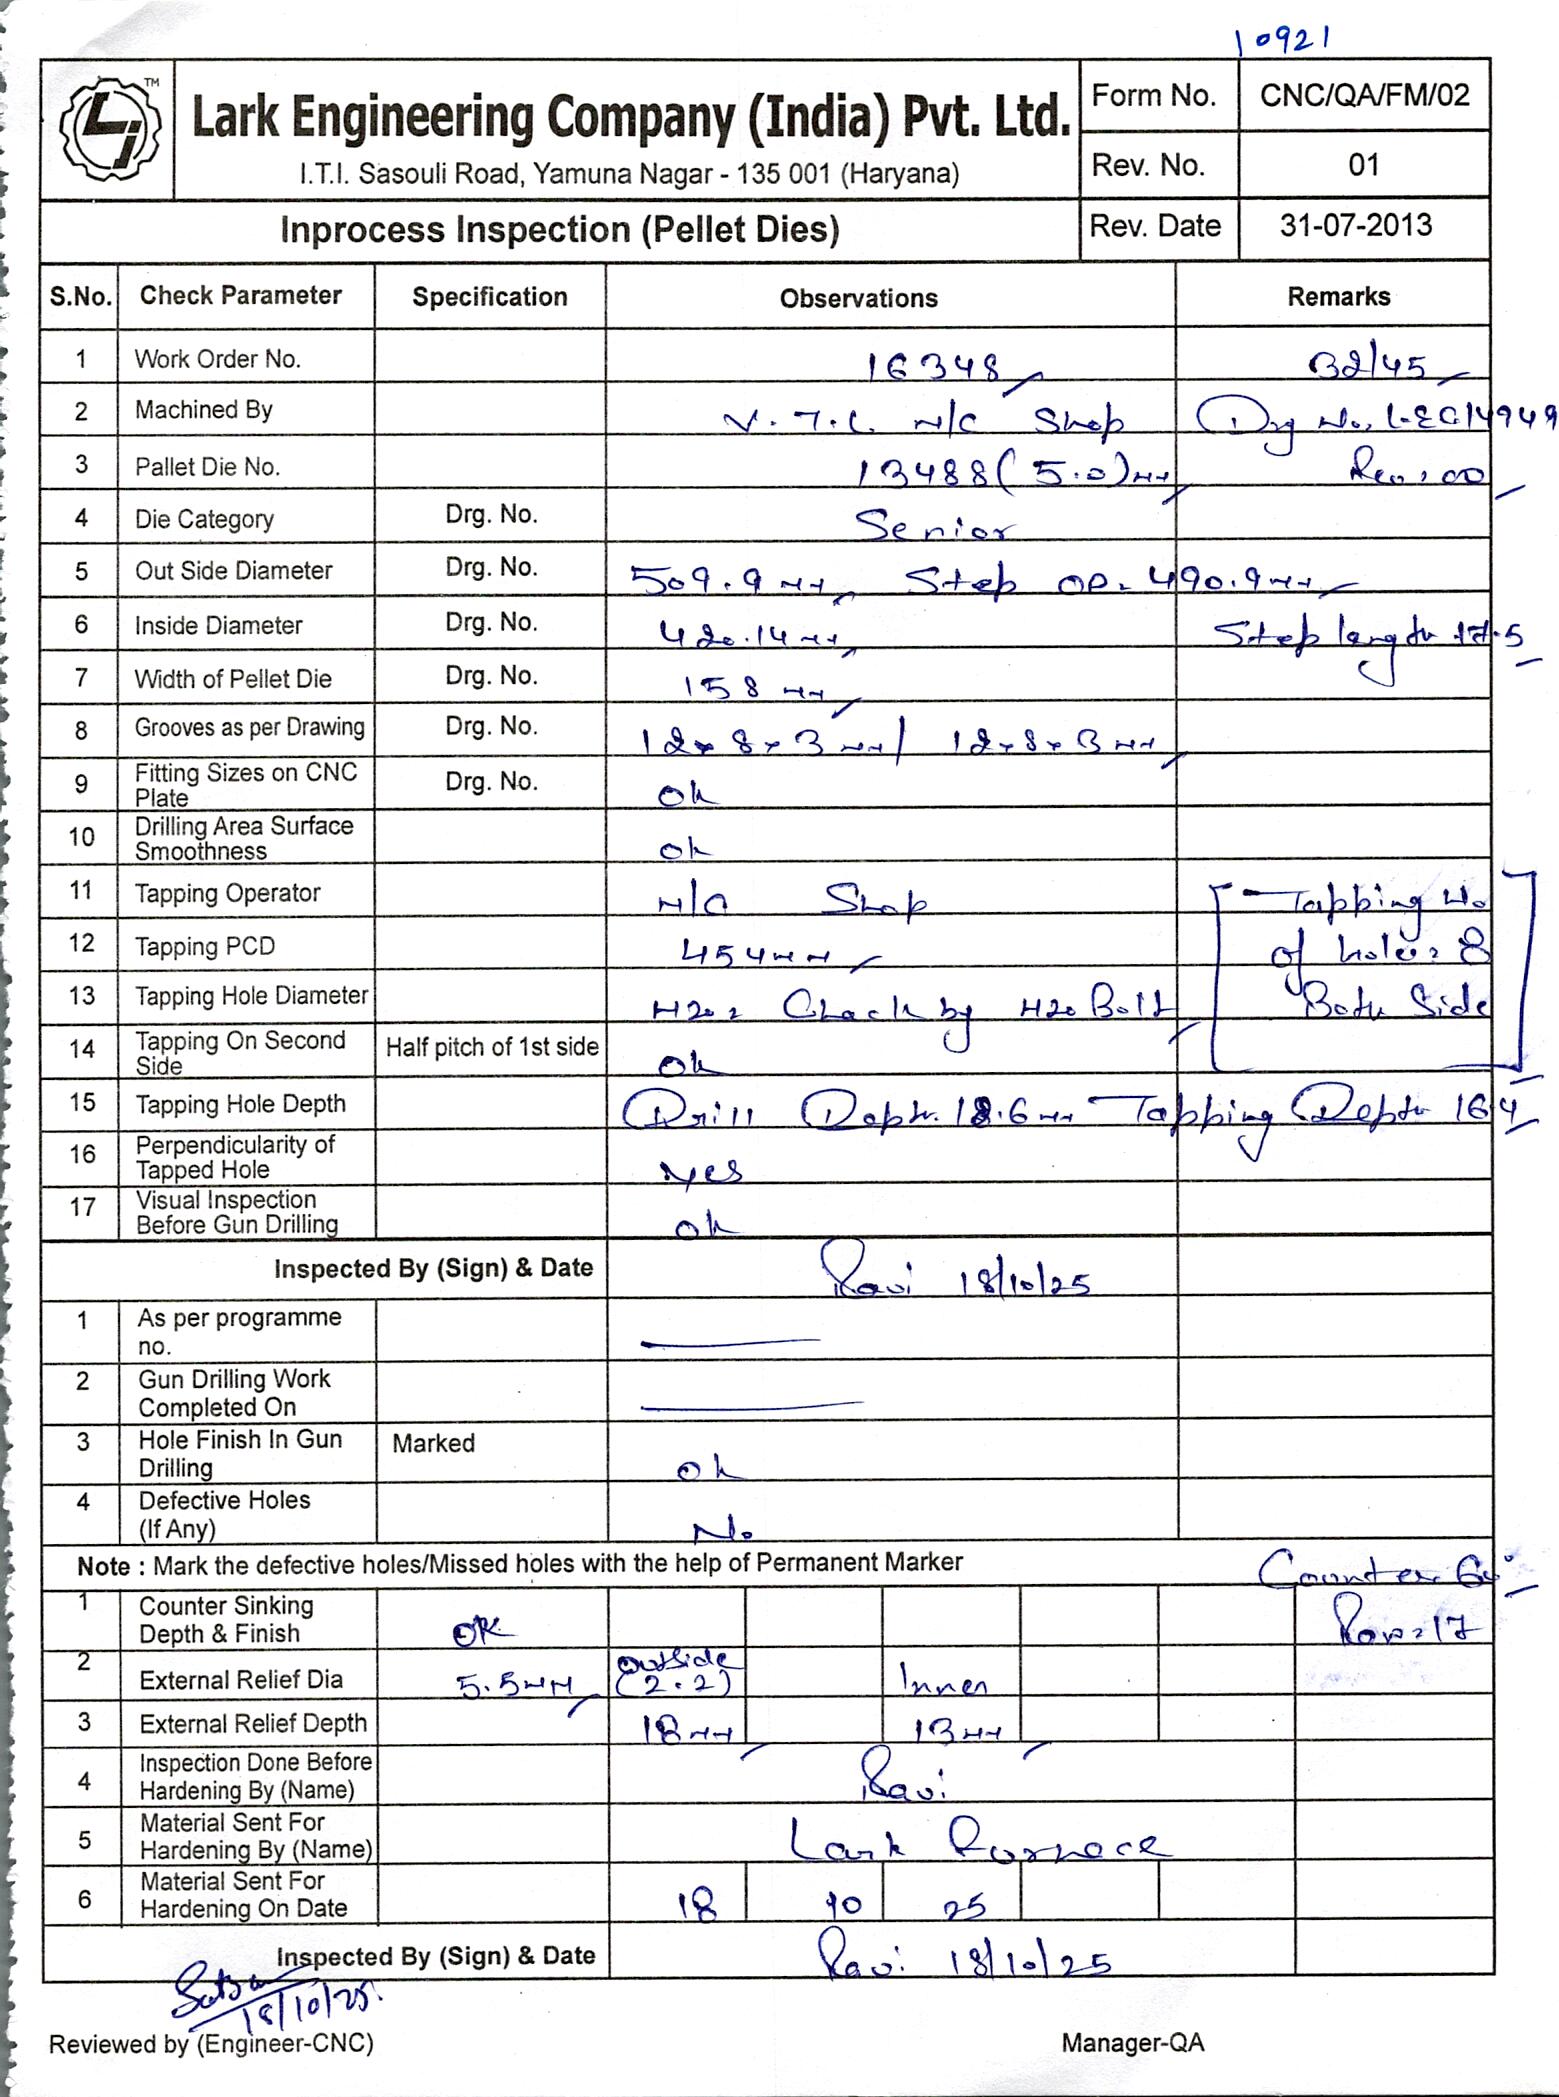 10921
TM
Lark Engineering Company (India) Pvt. Ltd.
I.T.I. Sasouli Road, Yamuna Nagar - 135 001 (Haryana)
Form No. CNC/QA/FM/02
Rev. No. 01
Inprocess Inspection (Pellet Dies) Rev. Date 31-07-2013
S.No. Check Parameter Specification Observations Remarks
1 Work Order No. 16348 32/45
2 Machined By V.T.L M/C Shop Drg No. LEC14949
3 Pallet Die No. 13488 (5.0)mm Rev: 00
4 Die Category Drg. No. Senior
5 Out Side Diameter Drg. No. 509.9mm Step OD- 490.9mm
6 Inside Diameter Drg. No. 420.14mm Step length 17.5
7 Width of Pellet Die Drg. No. 158mm
8 Grooves as per Drawing Drg. No. 12x8x3mm/ 12x8x3mm
9 Fitting Sizes on CNC Plate Drg. No. Ok
10 Drilling Area Surface Smoothness Ok
11 Tapping Operator M/C Shop Tapping No
12 Tapping PCD 454mm of holes 8
13 Tapping Hole Diameter M20 = Check by M20 Bolt Both Side
14 Tapping On Second Side Half pitch of 1st side Ok
15 Tapping Hole Depth Drill Depth 18.6mm Tapping Depth 16.4
16 Perpendicularity of Tapped Hole Yes
17 Visual Inspection Before Gun Drilling Ok
Inspected By (Sign) & Date Ravi 18/10/25
1 As per programme no.
2 Gun Drilling Work Completed On
3 Hole Finish In Gun Drilling Marked Ok
4 Defective Holes (If Any) No
Note : Mark the defective holes/Missed holes with the help of Permanent Marker Counter 60°
1 Counter Sinking Depth & Finish OK
2 External Relief Dia 5.5mm Outside (2.2) Inner
3 External Relief Depth 18mm 13mm
4 Inspection Done Before Hardening By (Name) Ravi
5 Material Sent For Hardening By (Name) Lark Furnace
6 Material Sent For Hardening On Date 18 10 25
Inspected By (Sign) & Date Ravi 18/10/25
18/10/25
Reviewed by (Engineer-CNC) Manager-QA